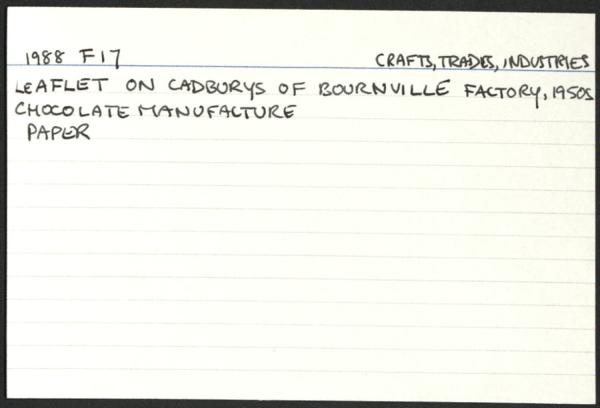 1988 F17 CRAFTS, TRADES, INDUSTRIES
LEAFLET ON CADBURYS OF BOURNVILLE FACTORY, 1950S
CHOCOLATE MANUFACTURE
PAPER